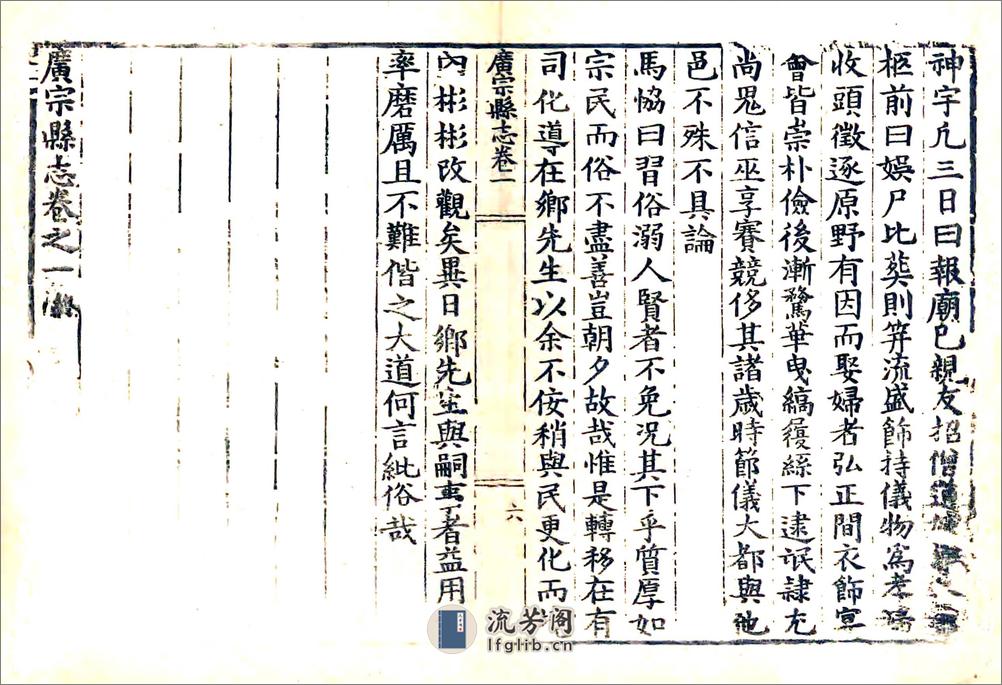 神宇凢三日曰報廟已親友招僧道
柩前曰娛尸比葬則筭流盛飾持儀物爲孝
收頭徵逐原野有因而娶婦者弘正間衣飾宴
會皆崇朴儉後漸騖華曳縞履絲下逮氓隷尤
尚鬼信巫享賽競侈其諸歲時節儀大都與他
邑不殊不具論
馬恊曰習俗溺人賢者不免況其下乎質厚如
宗民而俗不盡善豈朝夕故哉惟是轉移在有
司化導在鄉先生以余不佞稍與民更化而
廣宗縣志卷二
六
內彬彬改觀矣異日鄉先生與嗣事者益用
率磨厲且不難偕之大道何言紕俗哉
廣宗縣志卷之一
流芳阁
lfglib.cn